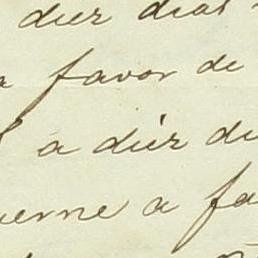 diez dias
a favor de
a diez di
uerne a fa